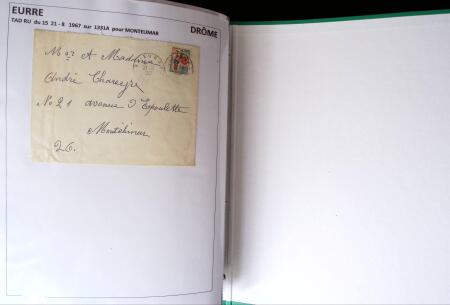 EURRE
TAD RU du 15 21 - 8 1967 sur 1331A pour MONTELIMAR
DRÔME
Mor et Madame
André Charesgre
No 21 avenue d'Espoulette
Montélimar
26.